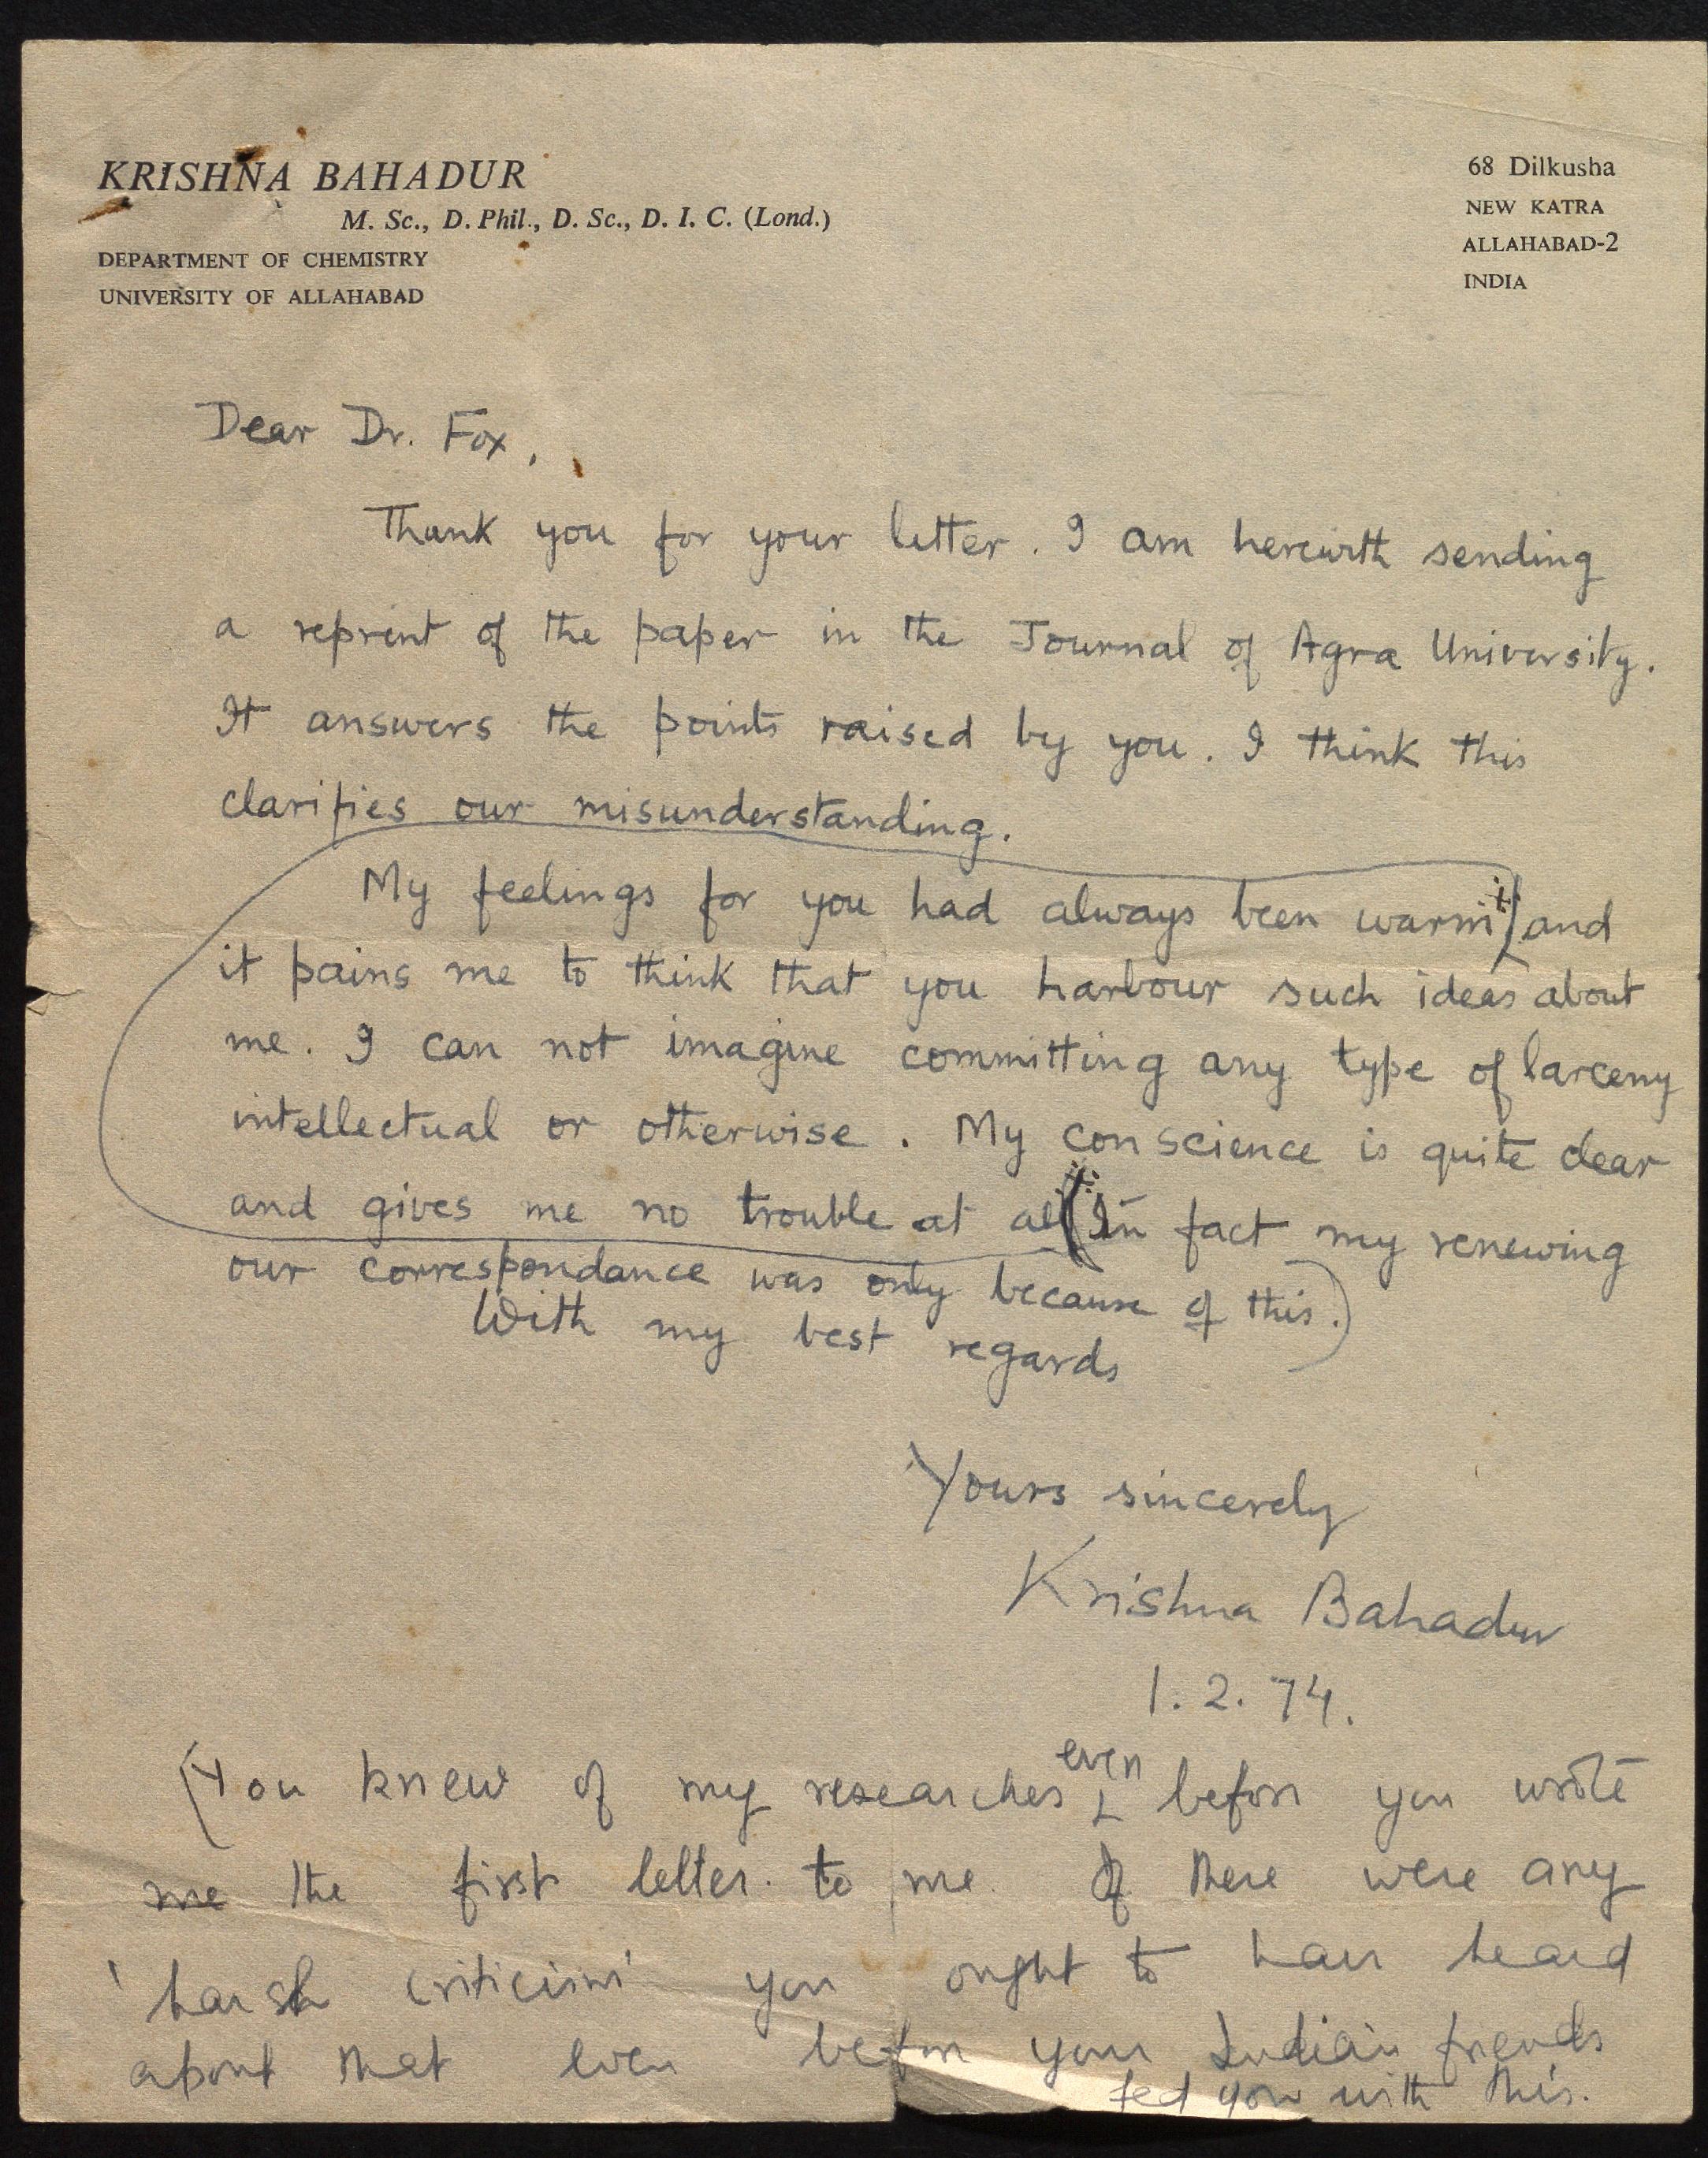 KRISHNA BAHADUR
M. Sc., D. Phil., D. Sc., D. I. C. (Lond.)
DEPARTMENT OF CHEMISTRY
UNIVERSITY OF ALLAHABAD
68 Dilkusha
NEW KATRA
ALLAHABAD-2
INDIA
Dear Dr. Fox,
Thank you for your letter. I am herewith sending
a reprint of the paper in the Journal of Agra University.
It answers the points raised by you. I think this
clarifies our misunderstanding.
My feelings for you had always been warm and
it pains me to think that you harbour such ideas about
me. I can not imagine committing any type of larceny
intellectual or otherwise. My conscience is quite clear
and gives me no trouble at all (In fact my renewing
our correspondance was only because of this.)
With my best regards
Yours sincerely
Krishna Bahadur
1.2.74.
(You knew of my researches even before you wrote
me the first letter to me. If there were any
'harsh criticism' you ought to have heard
about that even before your Indian friends
fed you with this.